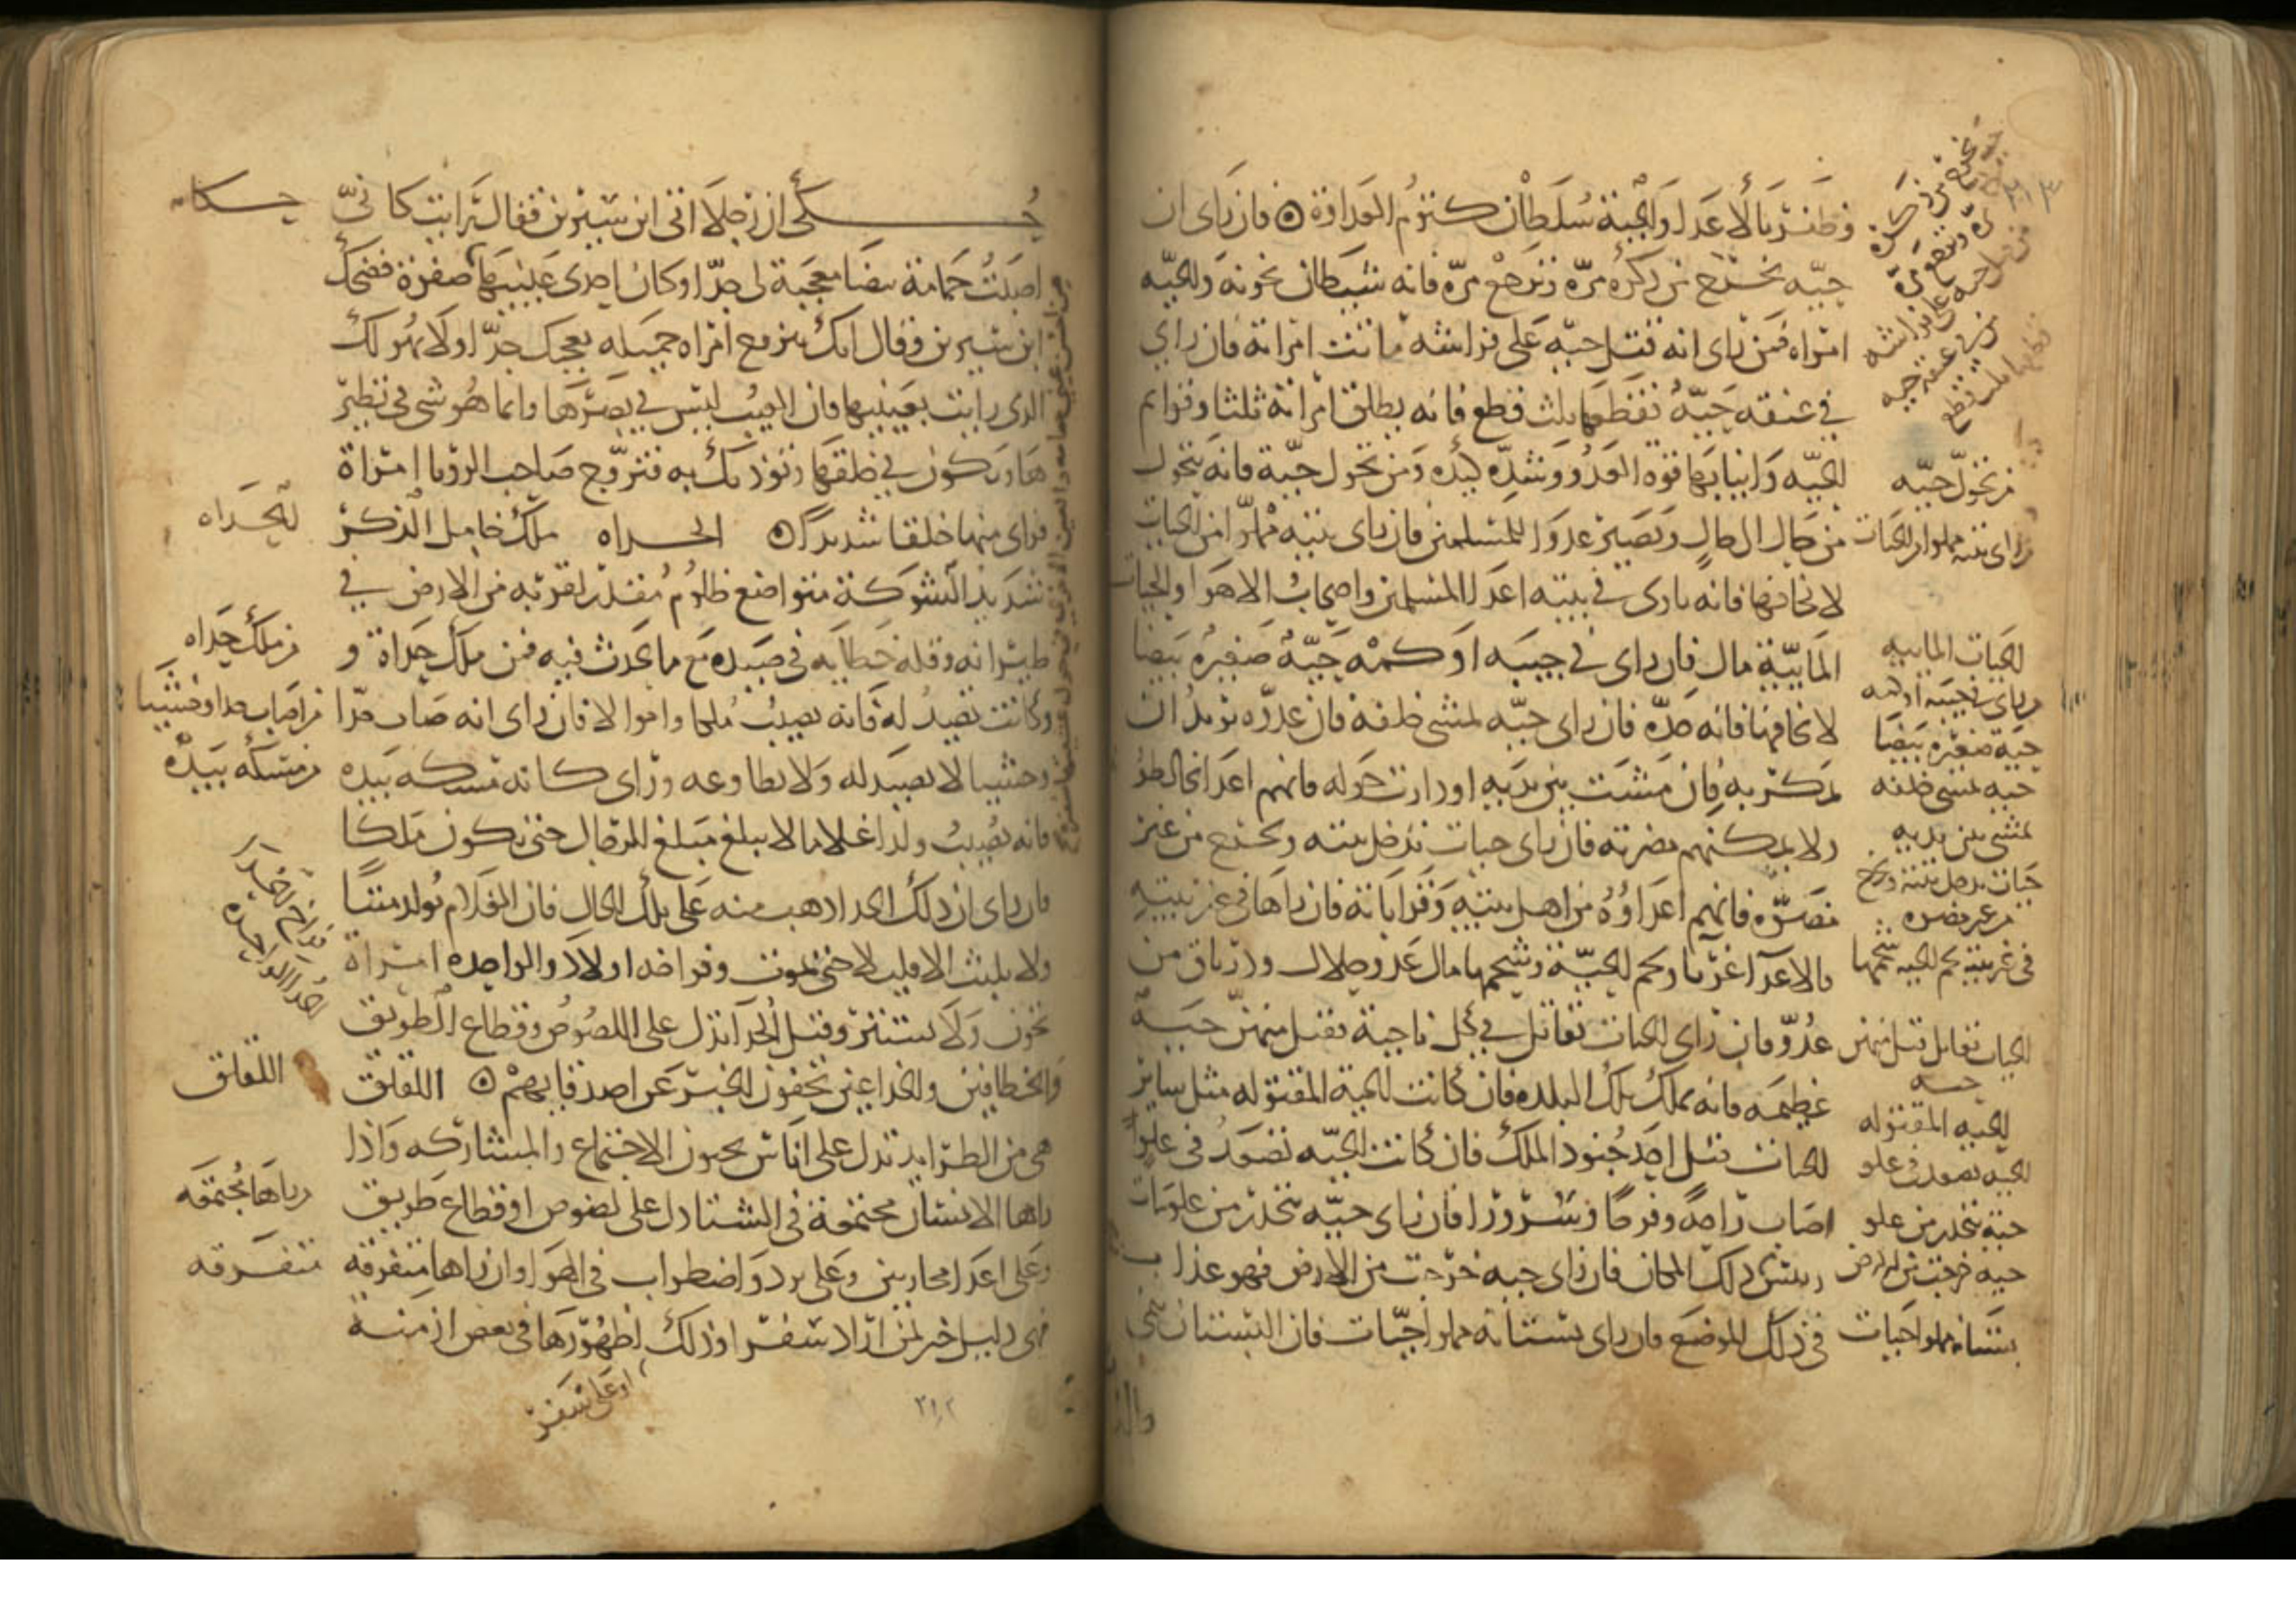 وظفر بالاعدا والحية سلطان كتوم العداوة ۞ فان راى ان
حيه تخرج من ذكره مره وترجع مره فانه شيطان يخونه والحيه
امراه فمن راى انه قتل حيه على فراشه ماتت امراته فان راى
في عنقه حيه فقطعها بثلث قطع فانه يطلق امراته ثلثا وقوايم
الحيه وانيابها قوة العدو وشده كيده ومن تحول حية فانه يتحول
من حال الى حال ويصير عدوا للمسلمين فان راى بيته مملوا من الحيات
لا يخافها فانه ياوى في بيته اعدا المسلمين واصحاب الاهوا والحيات
المايية مال فان راى في جيبه او كمه حية صغيره بيضا
لا يخافها فانه جده فان راى حيه تمشى خلفه فان عدوه يريد ان
يمكر به فان مشت بين يديه او دارت حوله فانهم اعدا يخالطوه
ولا يمكنهم مضرته فان راى حيات تدخل بيته وتخرج من غير
مضره فانهم اعداوه من اهل بيته وقراباته فان راها في غير بيته
فالاعدا غربا ولحم الحية وشحمها مال عدو حلال ودرياق من
عدو فان راى الحيات تقاتل في كل ناحية فقتل منهن حية
عظيمه فانه يملك تلك البلده فان كانت الحية المقتوله مثل ساير
الحيات قتل احد جنود الملك فان كانت الحيه تصعد في علو
اصاب راحه وفرحا وسرورا فان راى حيه تنحدر من علو مات
رييس ذلك المكان فان راى حيه خرجت من الارض فهو عذاب
في ذلك الموضع فان راى بستانه مملوا حيات فان البستان ينمى
من تحول حيه
راى بيته مملوا من الحيات
الحيات المايية
راى في جيبه او كمه
حية صغيره بيضا
حيه تمشى خلفه
تمشى بين يديه
حيات تدخل بيته وتخرج
من غير مضره
في غير بيته لحم الحيه شحمها
الحيات تقاتل قتل منهن
حيه
الحيه المقتوله
الحيه تصعد في علو
حية تنحدر من علو
حيه خرجت من الارض
بستانه مملوا حيات
حكى ان رجلا اتى ابن سيرين فقال رايت كانى
اصبت حمامة بيضا معجبة لى جدا وكان احدى عينيها صفرة فضحك
ابن سيرين وقال انك تتزوج امراه جميله تعجبك جدا ولا يهولك
الذى رايت بعينيها فان العيب ليس في بصرها وانما هو شى في نظير
هاويكون في خلقها وتوذيك به فتزوج صاحب الرويا امراة
فراى منها خلقا شديدا ۞ الحداه ملك خامل الذكر
شديد الشوكة متواضع ظلوم مقتدر لقربه من الارض في
طيرانه وقلة خطايه في صيده مع ما يحدث فيه فمن ملك حداة و
وكانت تصيد له فانه يصيب ملكا واموالا فان راى انه صاب حدا
وحشيا لا يصيد له ولا يطاوعه وراى كانه تمسكه بيده
فانه يصيب ولدا غلاما لا يبلغ مبلغ الرجال حتى يكون ملكا
فان راى ان ذلك الحدا ذهب منه على تلك الحال فان الغلام يولد ميتا
ولا يلبث الا قليلا حتى يموت وفراخه اولاد والواحده امراة
تخون ولا تستتر وقتل الحدا تدل على اللصوص وقطاع الطريق
والخطافين والخداعين يخفون الخير عن اصدقايهم ۞ اللقلق
هي من الطير ايد تدل على اناس يحبون الاجتماع والمشاركه واذا
راها الانسان مجتمعة في الشتا دل على لصوص او قطاع طريق
وعلى اعدا محاربين وعلى برد واضطراب في الهوا وان راها متفرقة
فهى دليل خير لمن اراد سفرا وذلك لظهورها في بعض ازمنة
او على سفر
حكاه
الحداه
من ملك حداه
من اصاب حدا وحشيا
من تمسكه بيده
اللقلق
راها مجتمعه
متفرقه
٢١٢